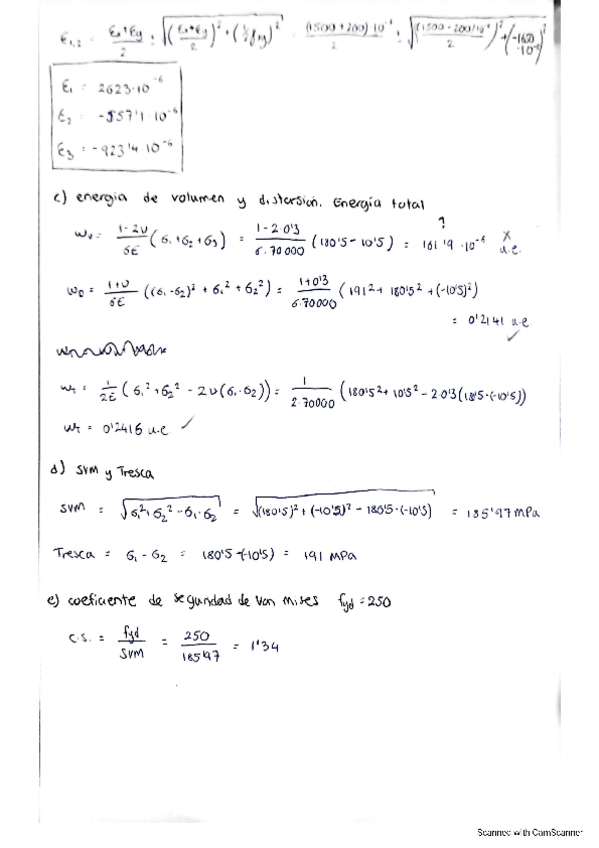 ε₁,₂ = (εx+εy)/2 ± √((εx+εy)/2)² + (½ γxy)² = (1500+200)·10⁻⁶/2 ± √((1500-200)10⁻⁶/2)² + (-1650·10⁻⁶)²
ε₁ = 2623·10⁻⁶
ε₂ = -557'1·10⁻⁶
ε₃ = -923'4·10⁻⁶
c) energia de volumen y distorsion. Energía total
?
w₀ = (1-2υ)/6E (σ₁+σ₂+σ₃) = (1-2·0'3)/(6·70000) (180'5-10'5) = 161'9·10⁻⁶ u.e. X
w_D = (1+υ)/6E ((σ₁-σ₂)² + σ₁² + σ₂²) = (1+0'3)/(6·70000) (191² + 180'5² + (-10'5)²)
= 0'2141 u.e ✓
w_T = 1/2E (σ₁² + σ₂² - 2υ(σ₁·σ₂)) = 1/(2·70000) (180'5² + 10'5² - 2·0'3(18'5·(-10'5))
w_T = 0'2416 u.e ✓
d) SVM y Tresca
SVM = √σ₁²+σ₂²-σ₁·σ₂ = √(180'5)²+(-10'5)²-180'5·(-10'5) = 185'97 MPa
Tresca = σ₁ - σ₂ = 180'5-(-10'5) = 191 MPa
e) coeficiente de seguridad de Von mises fyd = 250
C.S. = fyd/SVM = 250/185'97 = 1'34
Scanned with CamScanner